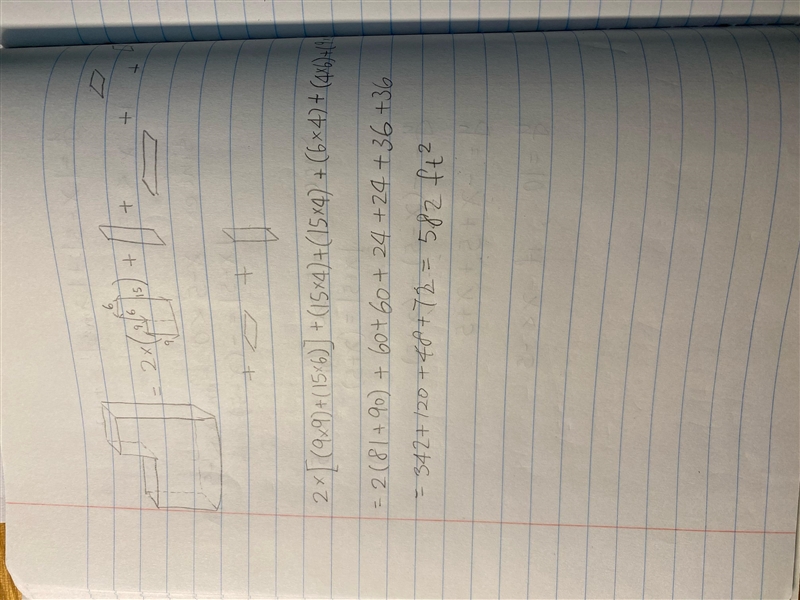 = 2 × ( 9 9 6 6 15 ) + + + +
+ +
2 × [(9×9)+(15×6)] + (15×4)+(15×4)+(6×4)+(4×6)+(9
= 2(81+90) + 60+60+24+24+36+36
= 342+120+48+72 = 582 ft²